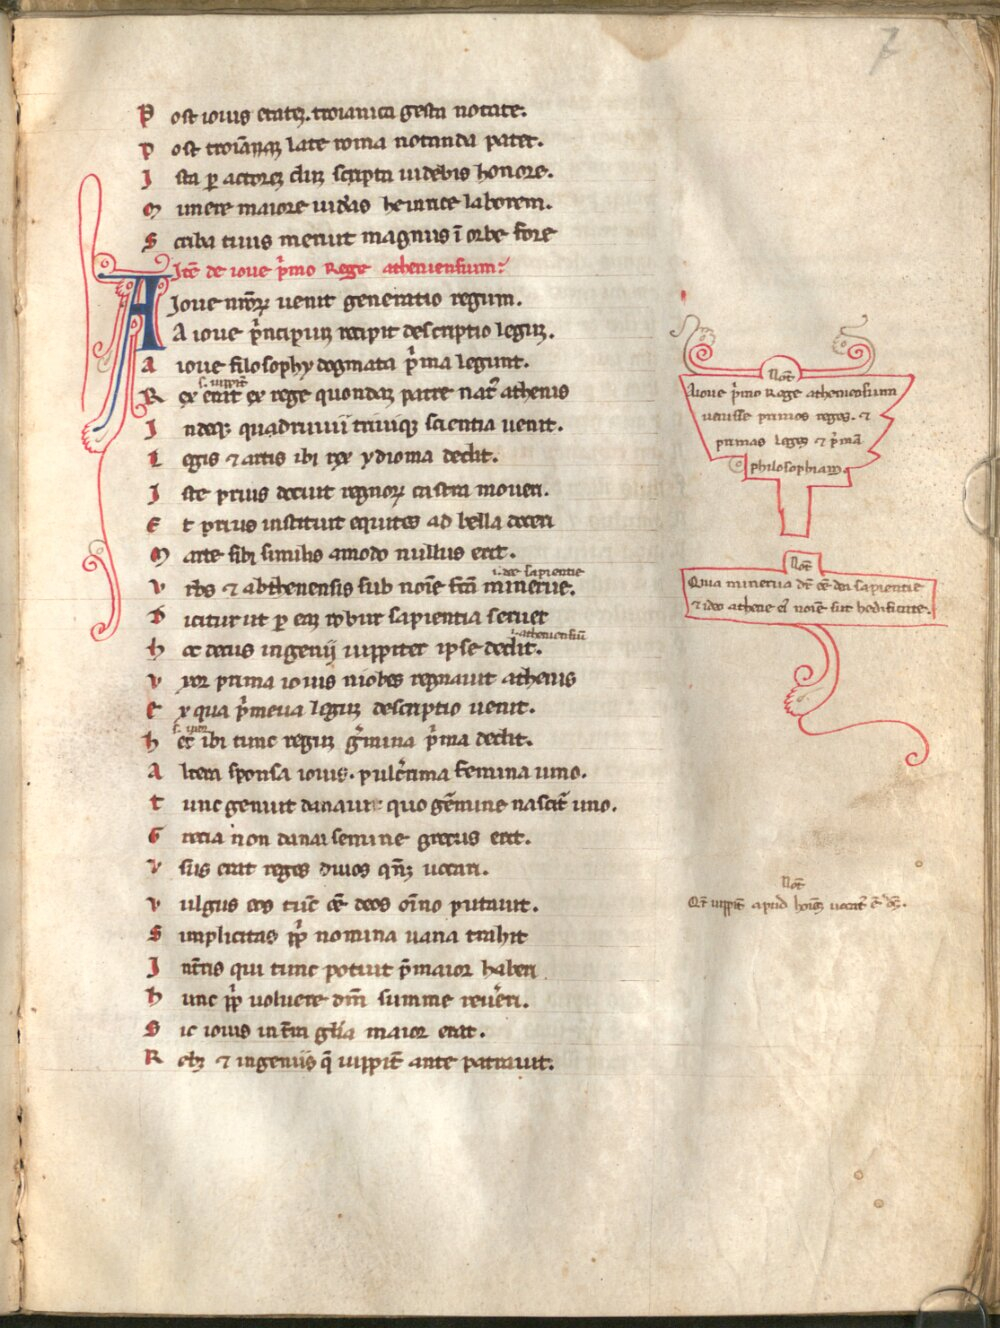 7
Post iouis etateʒ. troianica gesta notate.
Post troianaʒ late roma notanda patet.
Ista ꝑ actoreʒ cuiʒ scripta uidebis honore.
Munere maiore uideas heinrice laborem.
Scriba tuus meruit magnus ī orbe fore
Itē de ioue pͥmo Rege atheniensium.
A Ioue nr̄oꝝ uenit generatio regum.
A ioue pͥncipiuʒ recipit descriptio leguʒ.
A ioue filosophy dogmata pͥma legunt.
s. iuppit̄
Rex erat ex rege quondaʒ patre natꝰ athenis
Indeqʒ quadruuii triuiiqʒ scientia uenit.
Legis ⁊ artis ibi rex ydioma dedit.
Iste prius docuit regnoꝝ castra moueri.
Et prius instituit equites ad bella doceri
Marte sibi similis amodo nullus erat.
i. dee sapientie
Vrbs ⁊ abthenensis sub noīe fc̄a minerue.
Dicitur ut ꝑ eaʒ robur sapientia seruet
i. atheniensiū
Hoc decus ingenij iuppiter ipse dedit.
Vxor prima iouis niobes regnauit athenis
Ex qua pͥmeua leguʒ descriptio uenit.
s. uxor
Hec ibi tunc reguʒ gͥmina pͥma dedit.
Altera sponsa iouis. pulcͥrima femina uiuo.
Tunc genuit danauʒ quo gēmine nascit̄ uno.
Grecia non danai semine grecus erat.
Vsus erat reges diuos qn̄qʒ uocari.
Vulgus eos tūc eē deos oīno putauit.
Simplicitas ꝓpͥ nomina uana trahit
Int̄ris qui tunc potuit pͥmaior haberi
Hunc ꝓpͥ uoluere dm̄ summe reueͥri.
Sic iouis in t̄ra gl̄ia maior erat.
Rebʒ ⁊ ingeniis q̄ iuppit̄ ante patrauit.
Not̄
A ioue pͥmo Rege atheniensium
uenisse primos reges. ⁊
primas leges ⁊ pͥmā
philosophiam.
Not̄
Quia minerua dr̄ eē dea sapientie
⁊ ideo athene ei noīe sūt hedificate.
Not̄
Qr̄ iuppit̄ apud hoīes uocatꝰ ē dꝰ.